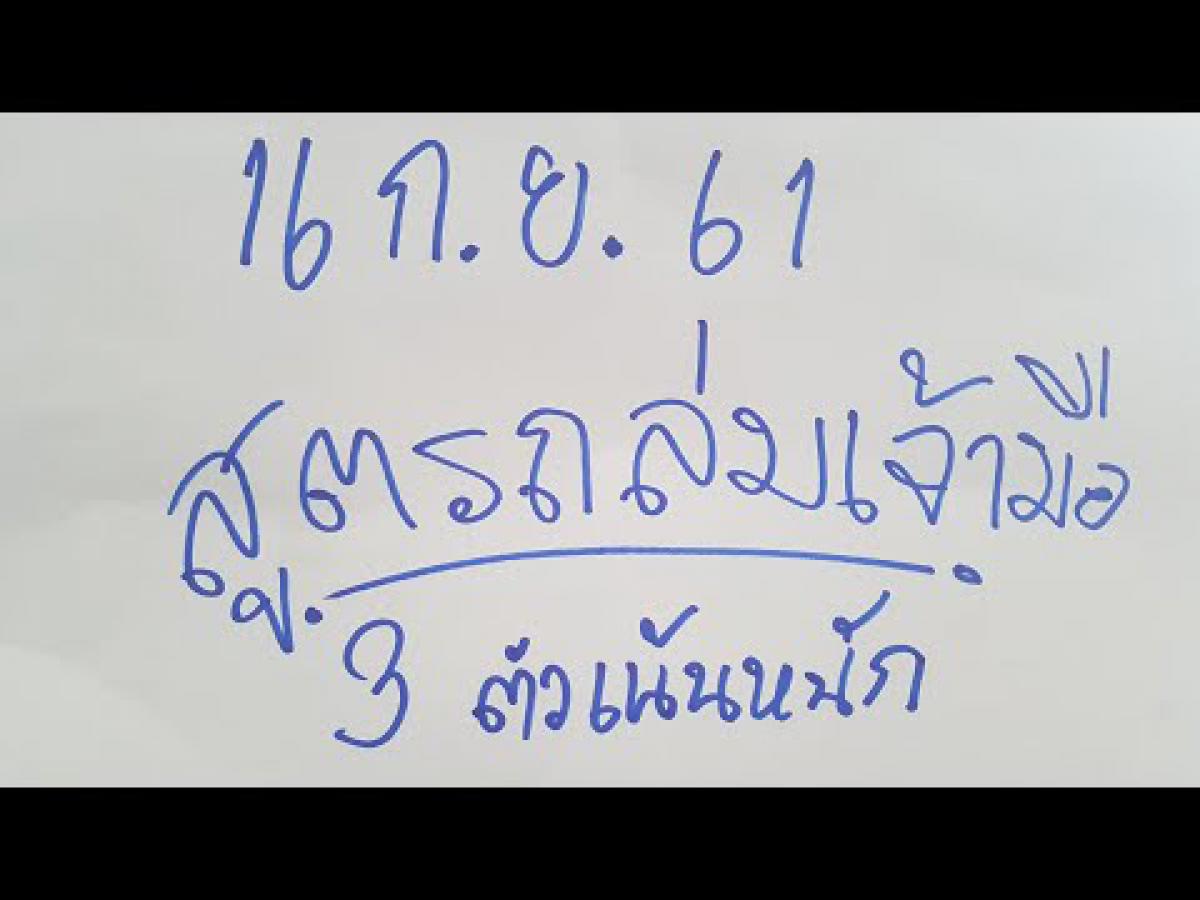 16 ก.ย. 61
สูตรถล่มเจ้ามือ
3 ตัวเน้นหนัก